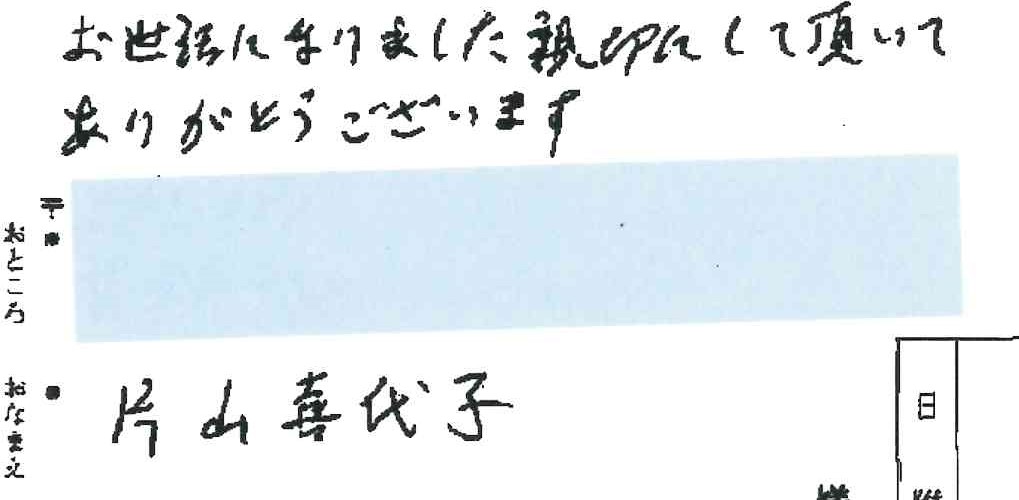 お世話になりました親切にして頂いて
ありがとうございます
〒
おところ
おなまえ
片山喜代子
日